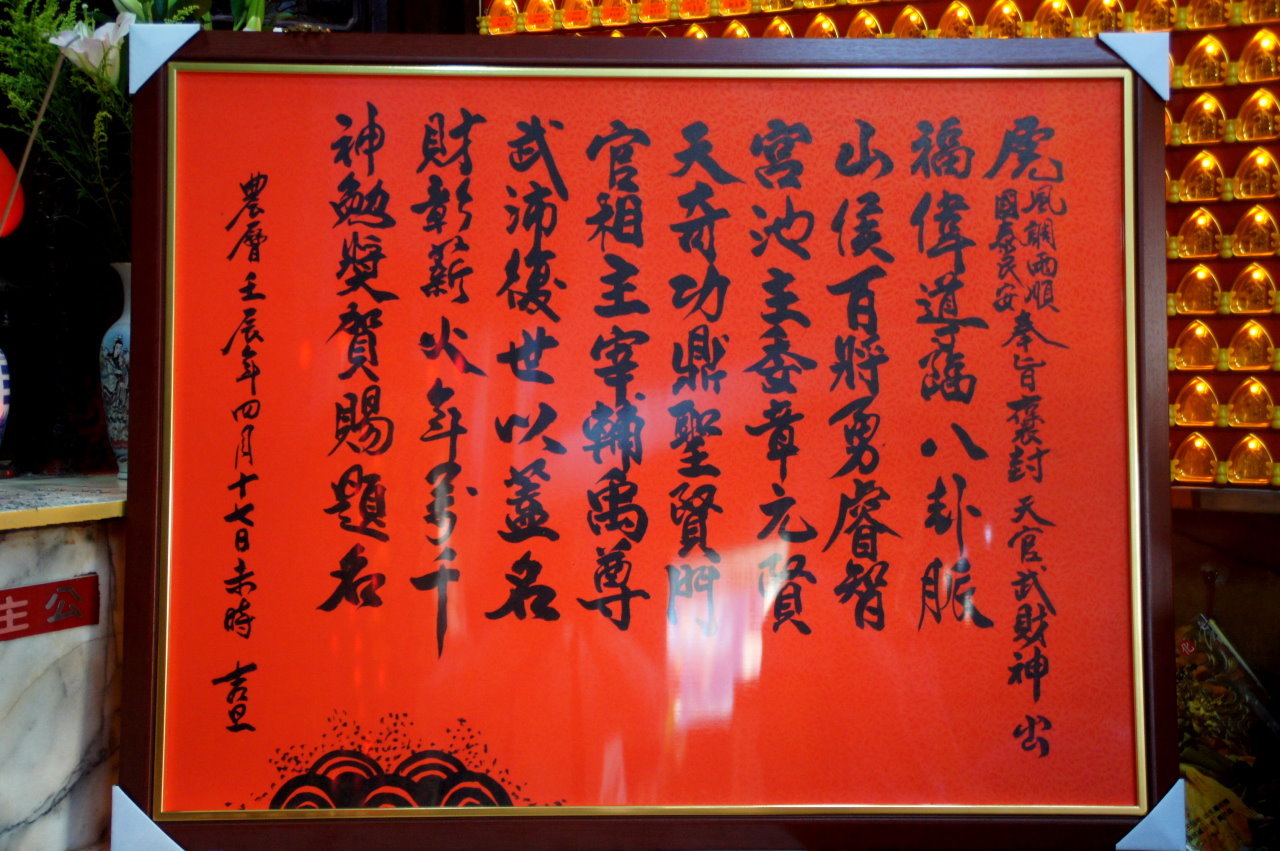 虎 風調雨順 國泰民安 奉旨褒封 天官武財神 出
福偉道蹈八卦脈
山侯百將勇睿智
宮池主委章元賢
天奇功鼎聖賢門
官相主宰輔禹尊
武沛復世以蓋名
財彰薪火年萬千
神勉獎賀賜題名
農曆壬辰年四月十七日未時 吉旦
公主